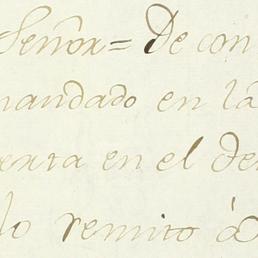 Señor = De con
mandado en la
enta en el de
lo remito á